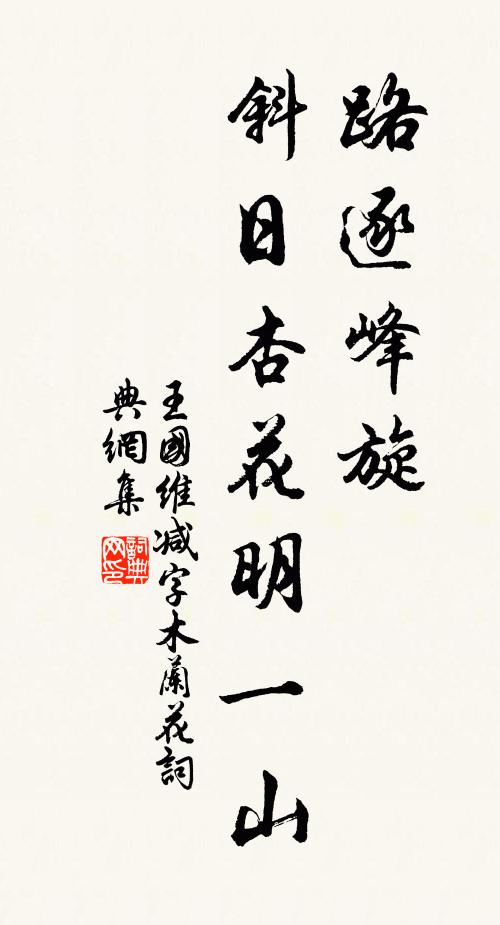 路逐峰旋
斜日杏花明一山
王國維减字木蘭花詞
典網集
詞典
网印